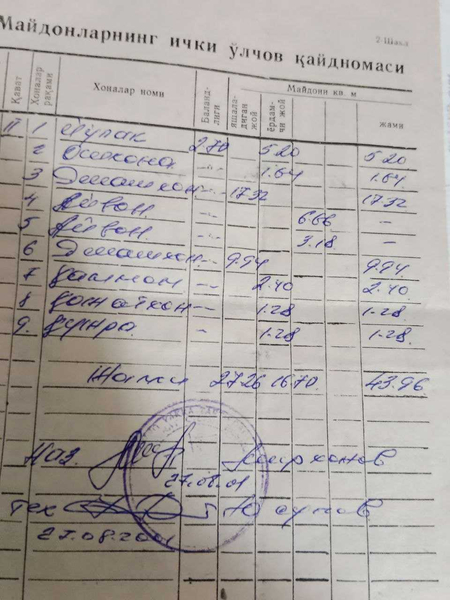 2-Шакл
Майдонларнинг ички ўлчов қайдномаси
Қават Хоналар рақами Хоналар номи Баландлиги Майдони кв. м
яшаладиган жой ёрдамчи жой жами
II 1 Йўлак 2.70 5.20 5.20
2 Ошхона -,,- 1.64 1.64
3 Яшашхон -,,- 17.32 17.32
4 Айвон -,,- 6.66 –
5 Айвон -,,- 3.18 –
6 Яшашхон -,,- 9.94 9.94
7 -,,- 2.40 2.40
8 -,,- 1.28 1.28
9. -,,- 1.28 1.28
Жами 27.26 16.70 43.96
Наз.
27.08.01
Тех Юсупов